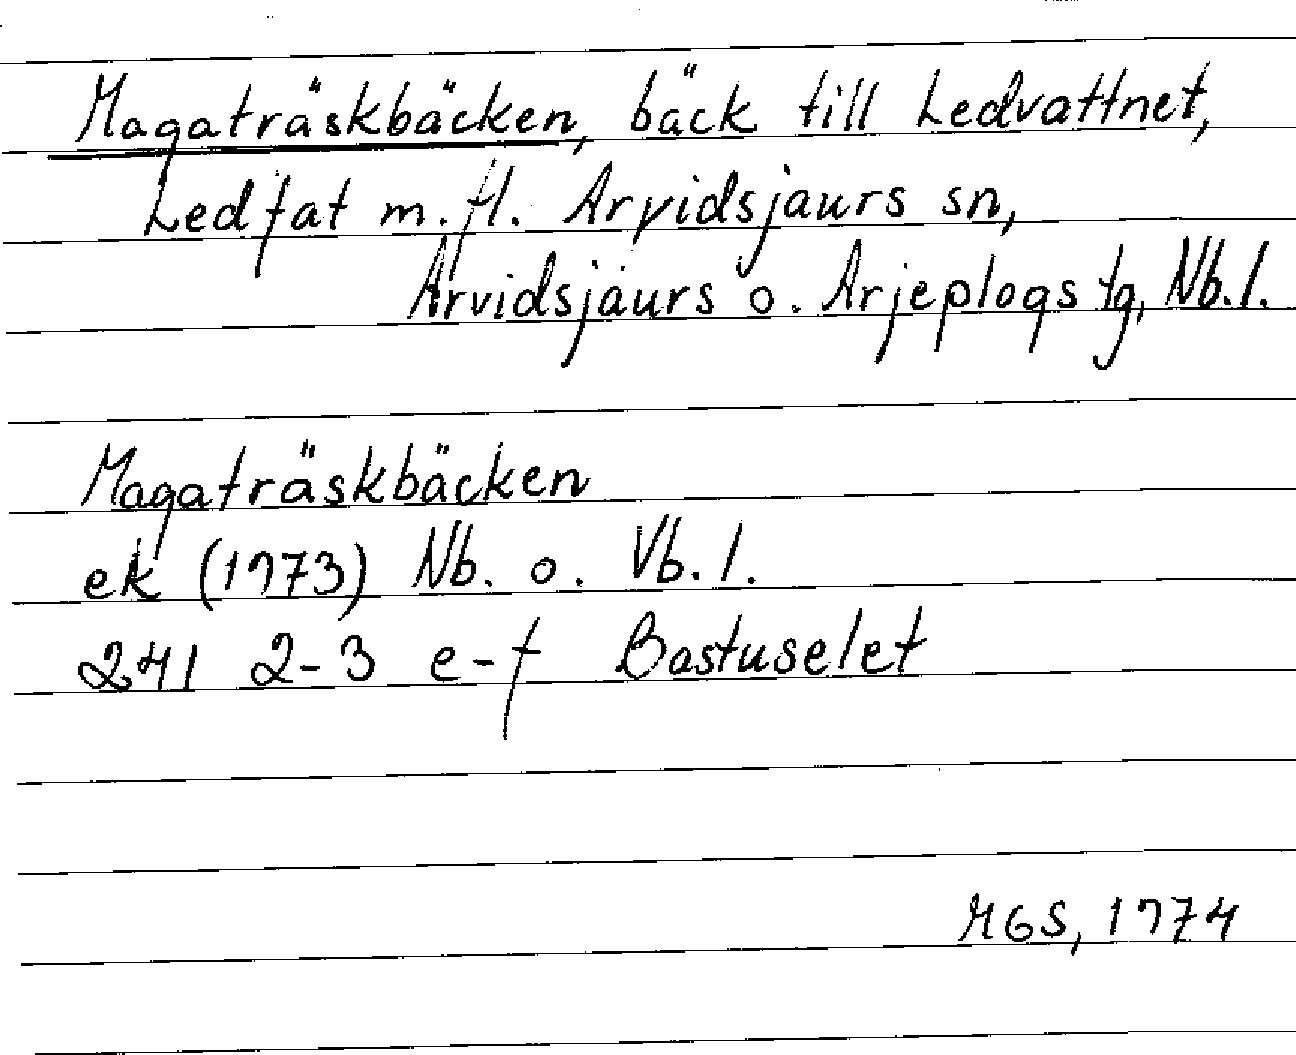 Magaträskbäcken, bäck till Ledvattnet,
Ledfat m.fl. Arvidsjaurs sn,
Arvidsjaurs o. Arjeplogs tg, Nb.l.
Magaträskbäcken
ek (1973) Nb. o. Vb.l.
241 2-3 e-f Bastuselet
MGS, 1974